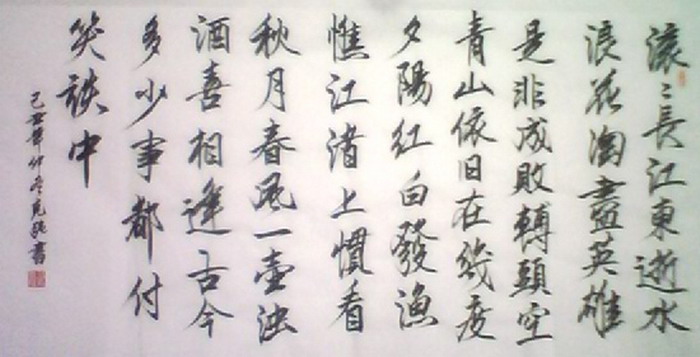 滚〻長江東逝水
浪花淘盡英雄
是非成敗轉頭空
青山依旧在幾度
夕陽红白發渔
憔江渚上慣看
秋月春風一壶浊
酒喜相逢古今
多少事都付
笑談中
己丑年仲冬書